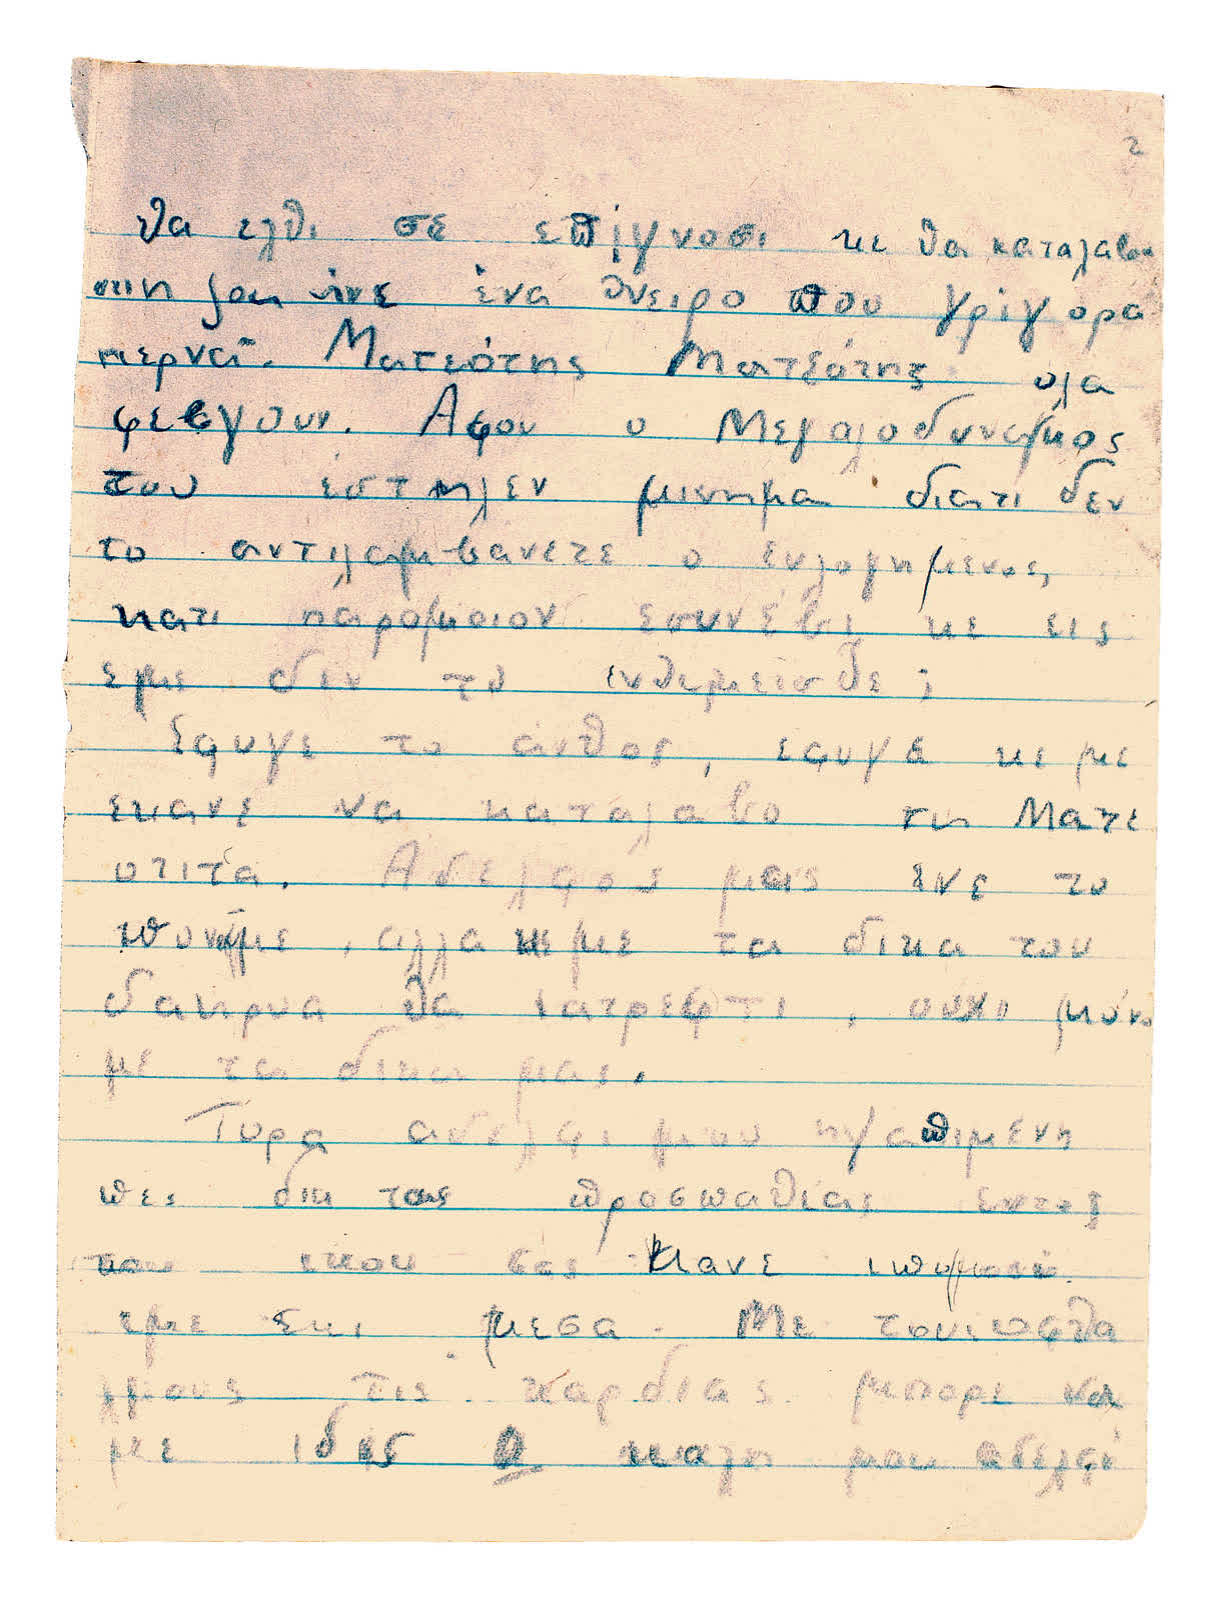 2
θα ελθι σε επίγνοσι κε θα καταλαβι
οτι η ζοι ίνε ένα όνειρο που γρίγορα
περνα. Ματεότης Ματεότης ολα
φεύγουν. Αφου ο Μεγαλοδυναμος
του έστηλεν μινημα διατι δεν
το αντιλαμβανετε ο ευλογημένος,
κατι παρομοιον εσυνέβι κε εις
εμε δεν το ενθιμείσθε;
Εφυγε το άνθος, εφυγε κε με
εκανε να καταλαβο τιν Ματε
οτιτα. Αδελφος μας ενε το
πονάμε, αλλα κε με τα δικα του
δακρυα θα ιατρεφτι, ουχι μόνο
με τα δικα μας.
Τορα αδελφι μου ηγαπιμένη
πες δια τας προσπαθίας εντος
του ικου σας κανε
εμε εκι μεσα. Με τους οφθα
λμους τις καρδιας μπορι να
με ιδις καλι μου αδελφί